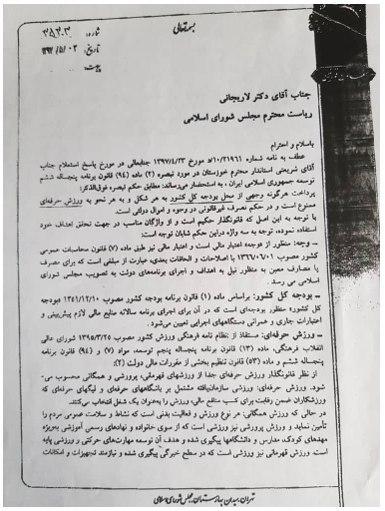 بسمه تعالی
شماره: ۳۵۲۰۳
تاریخ: ۱۳۹۷/۵/۰۲
پیوست:
جناب آقای دکتر لاریجانی
ریاست محترم مجلس شورای اسلامی
باسلام و احترام
عطف به نامه شماره ۱۰/۳۱۹۶۱ه مورخ ۱۳۹۷/۴/۲۳ جنابعالی در مورد پاسخ استعلام جناب
آقای شریعتی استاندار محترم خوزستان در مورد تبصره (۲) ماده (۹۴) قانون برنامه پنجساله ششم
توسعه جمهوری اسلامی ایران، به استحضار می‌رساند: مطابق حکم تبصره فوق‌الذکر:
پرداخت هرگونه وجهی از محل بودجه کل کشور به هر شکل و به هر نحو به ورزش حرفه‌ای
ممنوع است و در حکم تصرف غیرقانونی در وجوه و اموال دولتی است.
با توجه به این اصل که قانونگذار حکیم است و از واژگان مناسب در جهت تحقق اهداف خود
استفاده نموده، توجه به سه واژه در این حکم شایان توجه است:
ـ وجه: منظور از وجه؛ اعتبار مالی است و اعتبار مالی نیز طبق ماده (۷) قانون محاسبات عمومی
کشور مصوب ۱۳۶۶/۰۶/۰۱ با اصلاحات و الحاقات بعدی، عبارت از مبلغی است که برای مصرف
یا مصارف معین به منظور نیل به اهداف و اجرای برنامه‌های دولت به تصویب مجلس شورای
اسلامی می رسد.
ـ بودجه کل کشور: براساس ماده (۱) قانون برنامه بودجه کشور مصوب ۱۳۵۱/۱۲/۱۰ «بودجه
کل کشور» منظور بودجه‌ای است که در آن برای اجرای برنامه سالانه منابع مالی لازم پیش‌بینی و
اعتبارات جاری و عمرانی دستگاههای اجرایی تعیین می‌شود.
ـ ورزش حرفه‌ای: مستفاد از نظام نامه فرهنگی ورزش کشور مصوب ۱۳۹۵/۳/۲۵ شورای عالی
انقلاب فرهنگی، ماده (۱۳) قانون برنامه پنجساله پنجم توسعه، مواد (۷) و (۹۴) قانون برنامه
پنجساله ششم و ماده (۵۳) قانون تنظیم بخشی از مقررات مالی دولت (۲):
از نظر قانونگذار ورزش حرفه‌ای جدا از ورزشهای قهرمانی، پرورشی و همگانی محسوب می‌
شود. ورزش حرفه‌ای: ورزشی سازمان‌یافته مشتمل بر باشگاههای حرفه‌ای و لیگهای حرفه‌ای که
ورزشکاران ضمن رقابت برای کسب منافع مالی، ورزش را به‌عنوان یک شغل انتخاب می‌کنند.
در حالی که ورزش همگانی: هر نوع ورزش و فعالیت بدنی است که نشاط و سلامت عمومی مردم را
تأمین نماید و ورزش پرورشی نیز ورزشی است که از سوی خانواده و نهادهای رسمی آموزشی به‌ویژه
مهدهای کودک، مدارس و دانشگاهها پیگیری شده و هدف آن توسعه مهارت‌های حرکتی و ورزشی پایه
است. ورزش قهرمانی نیز ورزشی است که در سطح خبرگی پیگیری شده و نیازمند تجهیزات و امکانات
تهران، میدان بهارستان، مجلس شورای اسلامی